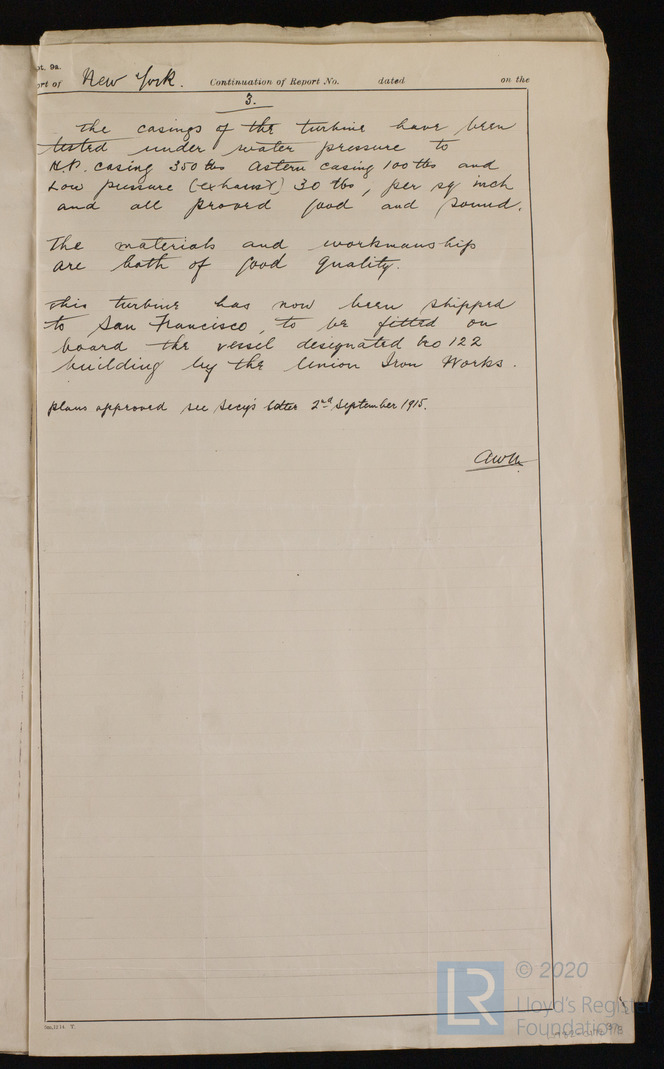 pt. 9a.
ort of New York. Continuation of Report No. dated on the
3.
The casings of the turbine have been
tested under water pressure to
H.P. casing 350 lbs astern casing 100 lbs and
Low pressure (exhaust) 30 lbs, per sq inch
and all proved good and sound.
The materials and workmanship
are both of good quality.
This turbine has now been shipped
to San Francisco, to be fitted on
board the vessel designated No 122
building by the Union Iron Works.
plans approved see Secy's letter 2nd September 1915.
5m,12.14. T.
LR
© 2020
Lloyd's Register
Foundation